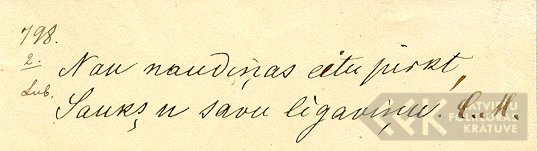 798.
2. Nau naudiņas citu pirkt,
Lub. Sauks̗u savu līgaviņu. L. M.
LATVIEŠU
FOLKLORAS
KRĀTUVE